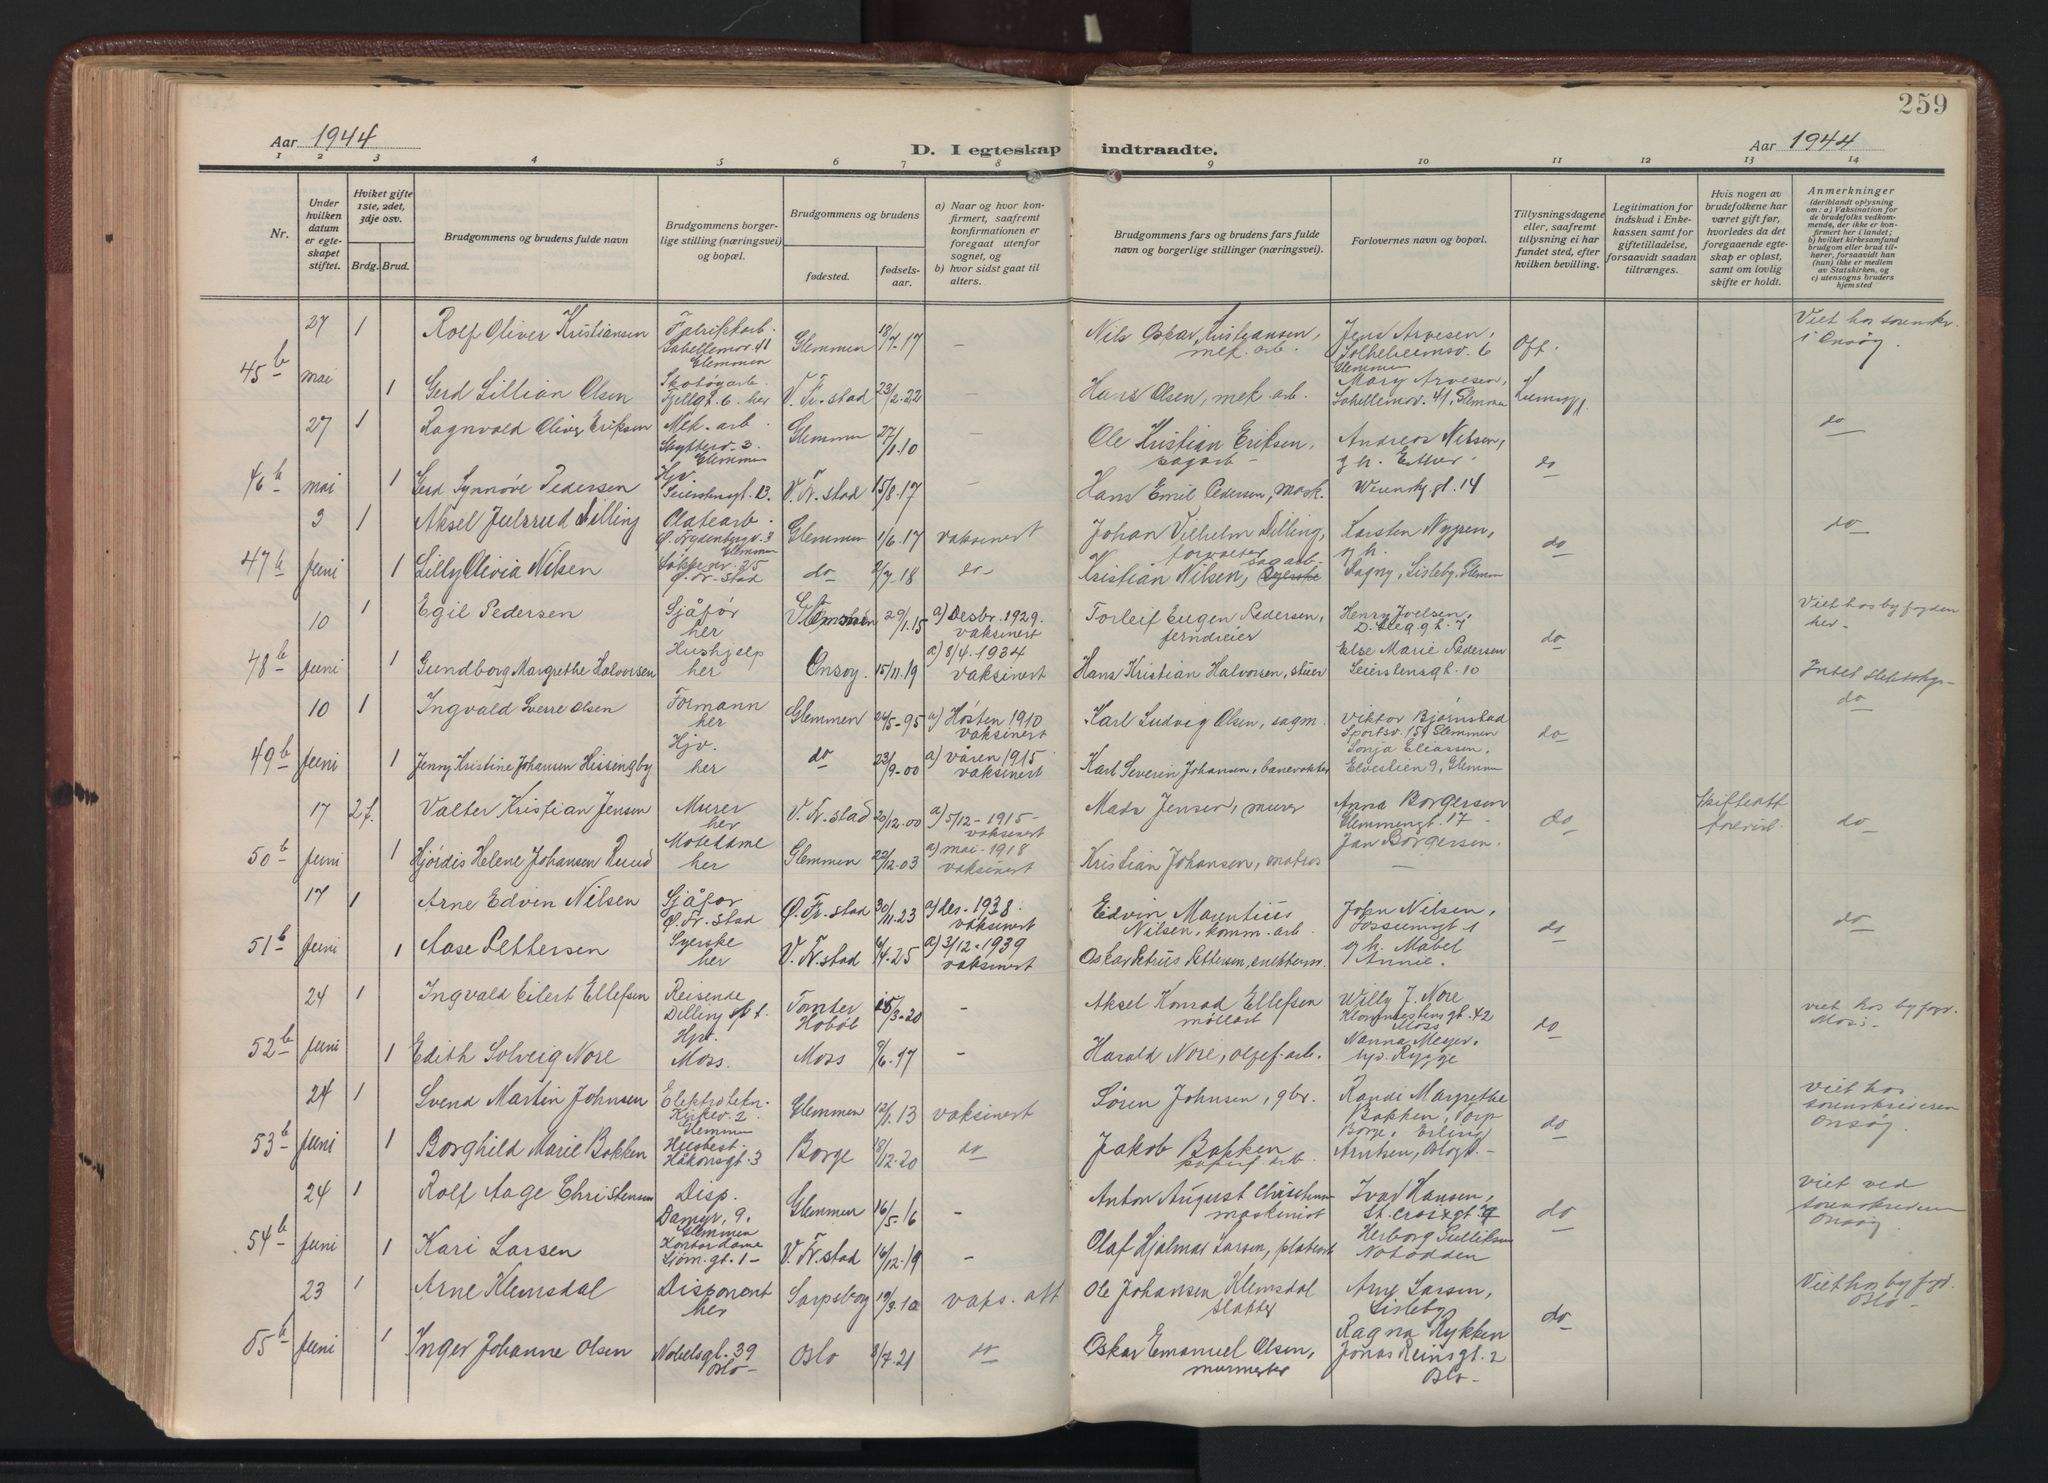 259
Aar 1944
D. I egteskap indtraadte.
Aar 1944
1 2 3 4 5 6 7 8 9 10 11 12 13 14
Nr.
Under hvilken datum er egteskapet stiftet.
Hviket gifte 1ste, 2det, 3dje osv.
Brdg. Brud.
Brudgommens og brudens fulde navn
Brudgommens borgerlige stilling (næringsvei) og bopæl.
Brudgommens og brudens
fødested.
fødselsaar.
a) Naar og hvor konfirmert, saafremt konfirmationen er foregaat utenfor sognet, og
b) hvor sidst gaat til alters.
Brudgommens fars og brudens fars fulde navn og borgerlige stillinger (næringsvei).
Forlovernes navn og bopæl.
Tillysningsdagene eller, saafremt tillysning ei har fundet sted, efter hvilken bevilling.
Legitimation for indskud i Enkekassen samt for giftetilladelse, forsaavidt saadan tiltrænges.
Hvis nogen av brudefolkene har været gift før, hvorledes da det foregaaende egteskap er opløst, samt om lovlig skifte er holdt.
Anmerkninger
(deriblandt oplysning om: a) Vaksination for de brudefolks vedkommende, der ikke er konfirmert her i landet; b) hvilket kirkesamfund brudgom eller brud tilhører, forsaavidt han (hun) ikke er medlem av Statskirken, og c) utensogns bruders hjemsted
45 b 27 mai 1 Rolf Oliver Kristiansen Fabrikkarb. 41 Glemmen Glemmen 18/7-17 - Nils Oskar Kristiansen, mek. arb. Jens Arvesen, Solheimsv. 6 Glemmen Off. Viet hos sorenskr. i Onsøy.
1 Gerd Lillian Olsen Skotøyarb. Fjellgt. 6. her V. Fr.stad 23/2-22 - Hans Olsen, mek. arb. Mary Arvesen, 41, Glemmen
46 b 27 mai 1 Ragnvald Oliver Eriksen Mek. arb. Skytterv. 3. Glemmen Glemmen 27/1-10 - Ole Kristian Eriksen, sagarb. Andreas Nilsen, g.h. Esther do do
1 Gerd Synnøve Pedersen Hjv. Seierstensgt. 13. V. Fr.stad 15/8-17 - Hans Emil Pedersen, mask. Wernskj.gt. 14
47 b 3 juni 1 Aksel Julsrud Dilling Platearb. Glemmen Glemmen 1/6-17 vaksinert Johan Vilhelm Dilling, forvalter Karsten Nygren, g.h. do do
1 Lilly Olivia Nilsen 25 Ø. Fr.stad do 2/7-18 do - Kristian Nilsen, sagarb. Ragny, Lisleby, Glemmen
48 b 10 juni 1 Egil Pedersen Sjåfør her Glemmen 29/1-15 a) Desbr. 1929. vaksinert Torleif Eugen Pedersen, jerndreier Henry Joelsen, D. Meggt. 7 do Viet hos byfogden her.
1 Gundborg Margrethe Halvorsen Hushjelp her Onsøy. 15/11-19 a) 8/4. 1934 vaksinert Hans Kristian Halvorsen, stuer Else Marie Pedersen Seierstensgt. 10 Intet slektskap
49 b 10 juni 1 Ingvald Sverre Olsen Formann her Glemmen 26/5-95 a) Høsten 1910 vaksinert Karl Ludvig Olsen, sagm. Viktor Bjørnstad Sportsv. 15, Glemmen do do
1 Jenny Kristine Johansen Hissingby Hjv. her do 23/9-00 a) våren 1915 vaksinert Karl Severin Johansen, banevokter Sonja Eliassen, Elvestien 9, Glemmen
50 b 17 juni 2 f. Valter Kristian Jensen Murer her V. Fr.stad 20/12-00 a) 5/12-1915- vaksinert Mads Jensen, murer Anna Borgersen Glemmengt. 17 - do skifteatt forevist. do
1 Hjördis Helene Johansen Ruud Motedame her Glemmen 22/12-03 a) mai-1918 vaksinert Kristian Johansen, matros Jan Borgersen.
51 b 17 juni 1 Arne Edvin Nilsen Sjåfør Ø. Fr. stad Ø. Fr. stad 30/11-23 a) des. 1938. vaksinert Edvin Mauritius Nilsen, komm. arb. John Nilsen, Fossumgt. 1 do do
1 Aase Pettersen Syerske her V. Fr. stad 6/4-25 a) 3/12-1939 vaksinert Oskar Petrus Pettersen, g.h. Mabel Annie.
52 b 24 juni 1 Ingvald Eilert Ellefsen Reisende Dilling st. Tomter Hobøl 15/3-20 - Aksel Konrad Ellefsen Willy J. Nore 42 Moss do Viet hos byfogd. Moss.
1 Edith Solveig Nore Moss. Moss 9/6-17 - Harald Nore, Nanna Meyer, Rygge
53 b 24 juni 1 Svend Martin Johnsen Elektrotekn. Kirkev. 2 Glemmen Glemmen 12/1-13 vaksinert Søren Johnsen, gbr. Randi Margrethe Bakken, Torp Borge, Erling Arntzen, do Viet hos sorenskriveren Onsøy.
1 Borghild Marie Bakken Håkonsgt. 3 Borge 18/12-20 do Jakob Bakken papirarb.
54 b 24 juni 1 Rolf Aage Christensen Disp. Damyr. 9. Glemmen Glemmen 16/5-16 - Anton August Christensen maskinist Ivar Hansen, St. Croixgt. 9 do Viet ved sorenskriveren Onsøy
1 Kari Larsen Kontordame Sjøm.gt. 1- V. Fr.stad 16/12-19 - Olaf Hjalmar Larsen, platearb. Herborg Gulliksen Notodden
55 b 23 juni 1 Arne Klemsdal Disponent her Sarpsborg 19/9-12 vaks. att Ole Johansen Klemsdal slakter Arne Larsen, Lisleby do Viet hos byfogd. Oslo -
1 Inger Johanne Olsen Nobelsgt. 39 Oslo - Oslo 3/7-21 do Oskar Emanuel Olsen, murmester Ragna Rykken Jonas Reinsgt. 2 Oslo -